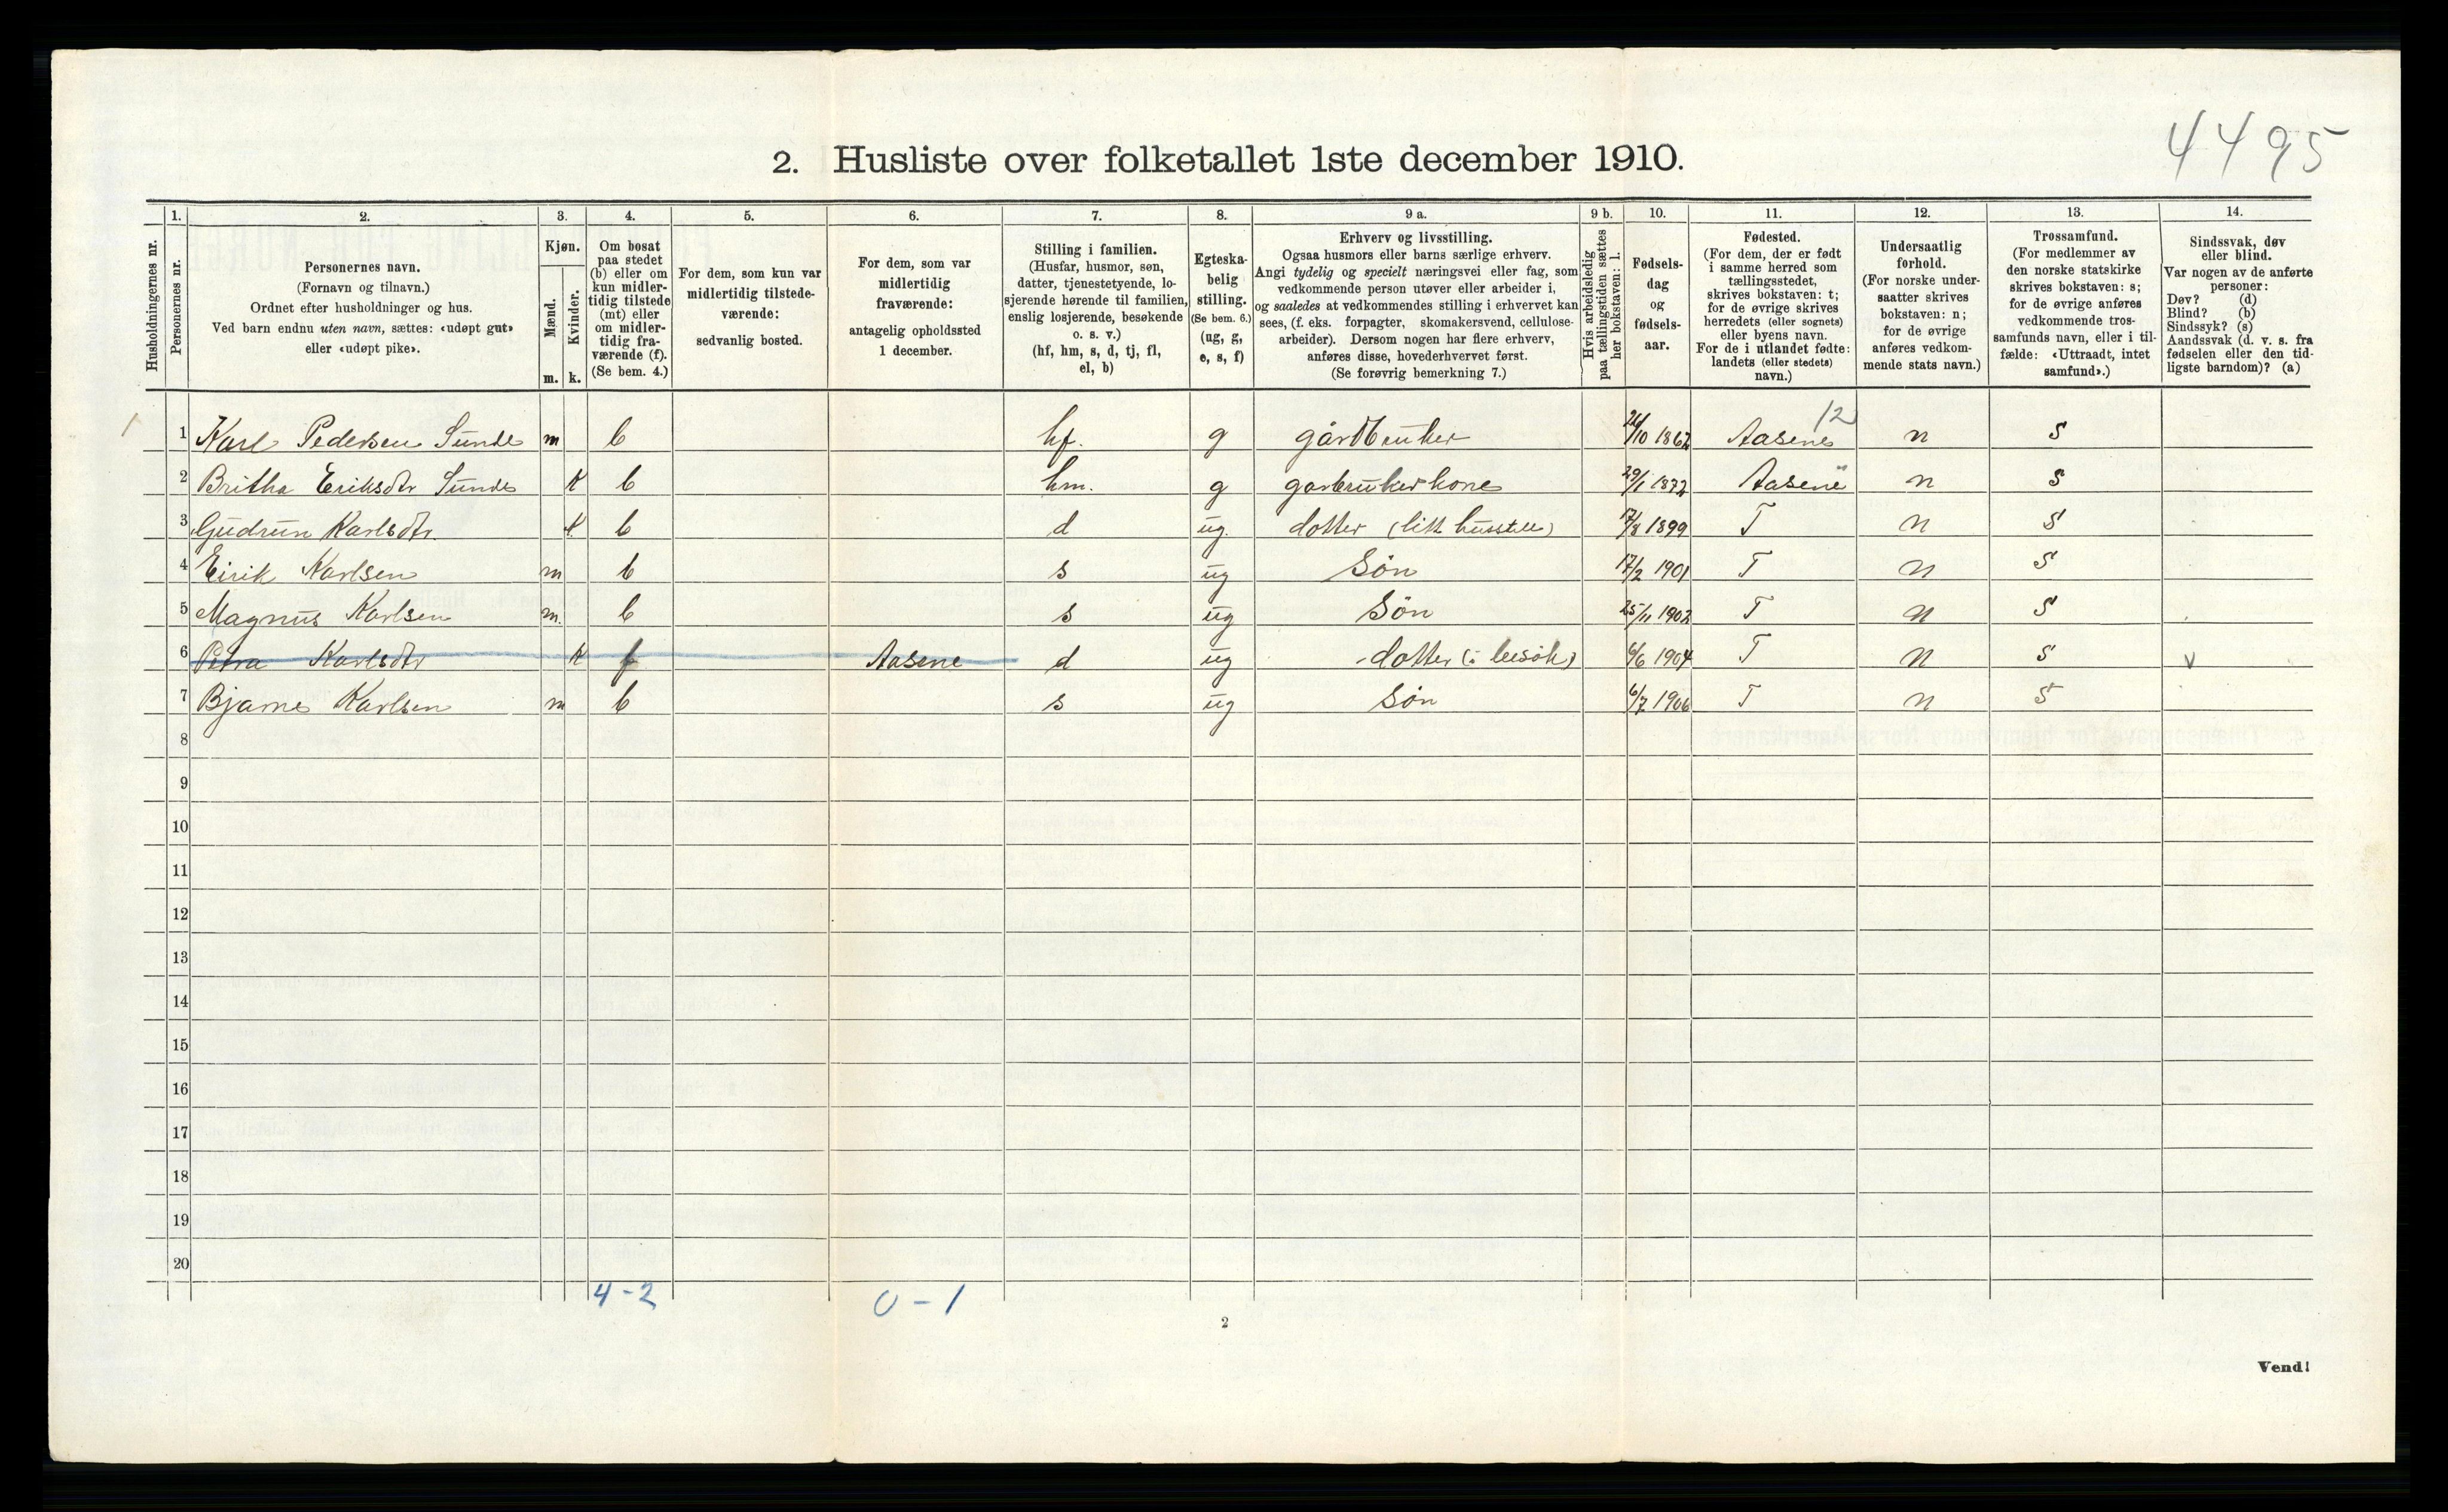 4495
2. Husliste over folketallet 1ste december 1910.
Husholdningernes nr.
1. Personernes nr.
2. Personernes navn. (Fornavn og tilnavn.) Ordnet efter husholdninger og hus. Ved barn endnu uten navn, sættes: «udøpt gut» eller «udøpt pike».
3. Kjøn. Mænd. m. Kvinder. k.
4. Om bosat paa stedet (b) eller om kun midlertidig tilstede (mt) eller om midlertidig fraværende (f). (Se bem. 4.)
5. For dem, som kun var midlertidig tilstedeværende: sedvanlig bosted.
6. For dem, som var midlertidig fraværende: antagelig opholdssted 1 december.
7. Stilling i familien. (Husfar, husmor, søn, datter, tjenestetyende, losjerende hørende til familien, enslig losjerende, besøkende o. s. v.) (hf, hm, s, d, tj, fl, el, b)
8. Egteskabelig stilling. (Se bem. 6.) (ug, g, e, s, f)
9 a. Erhverv og livsstilling. Ogsaa husmors eller barns særlige erhverv. Angi tydelig og specielt næringsvei eller fag, som vedkommende person utøver eller arbeider i, og saaledes at vedkommendes stilling i erhvervet kan sees, (f. eks. forpagter, skomakersvend, cellulosearbeider). Dersom nogen har flere erhverv, anføres disse, hovederhvervet først. (Se forøvrig bemerkning 7.)
9 b. Hvis arbeidsledig paa tællingstiden sættes her bokstaven: l.
10. Fødselsdag og fødselsaar.
11. Fødested. (For dem, der er født i samme herred som tællingsstedet, skrives bokstaven: t; for de øvrige skrives herredets (eller sognets) eller byens navn. For de i utlandet fødte: landets (eller stedets) navn.)
12. Undersaatlig forhold. (For norske undersaatter skrives bokstaven: n; for de øvrige anføres vedkommende stats navn.)
13. Trossamfund. (For medlemmer av den norske statskirke skrives bokstaven: s; for de øvrige anføres vedkommende trossamfunds navn, eller i tilfælde: «Uttraadt, intet samfund».)
14. Sindssvak, døv eller blind. Var nogen av de anførte personer: Døv? (d) Blind? (b) Sindssyk? (s) Aandssvak (d. v. s. fra fødselen eller den tidligste barndom)? (a)
12
1 1 Karl Pedersen Sunde m b hf. g gårdbruker 26/10 1862 Aasene n s
2 Britha Eriksdtr Sunde K b hm. g garbruker kone 29/1 1872 Aasene n s
3 Gudrun Karlsdtr. K b d ug. dotter (litt husstell) 17/8 1899 T n s
4 Eirik Karlsen m b s ug Søn 17/2 1901 T n s
5 Magnus Karlsen m. b s ug Søn 25/11 1902 T n s
6 Petra Karlsdtr K f Aasene d ug dotter (i besøk) 6/6 1904 T n s v
7 Bjarne Karlsen m b s ug Søn 6/7 1906 T n s
8
9
10
11
12
13
14
15
16
17
18
19
20
4-2 0-1
2
Vend!